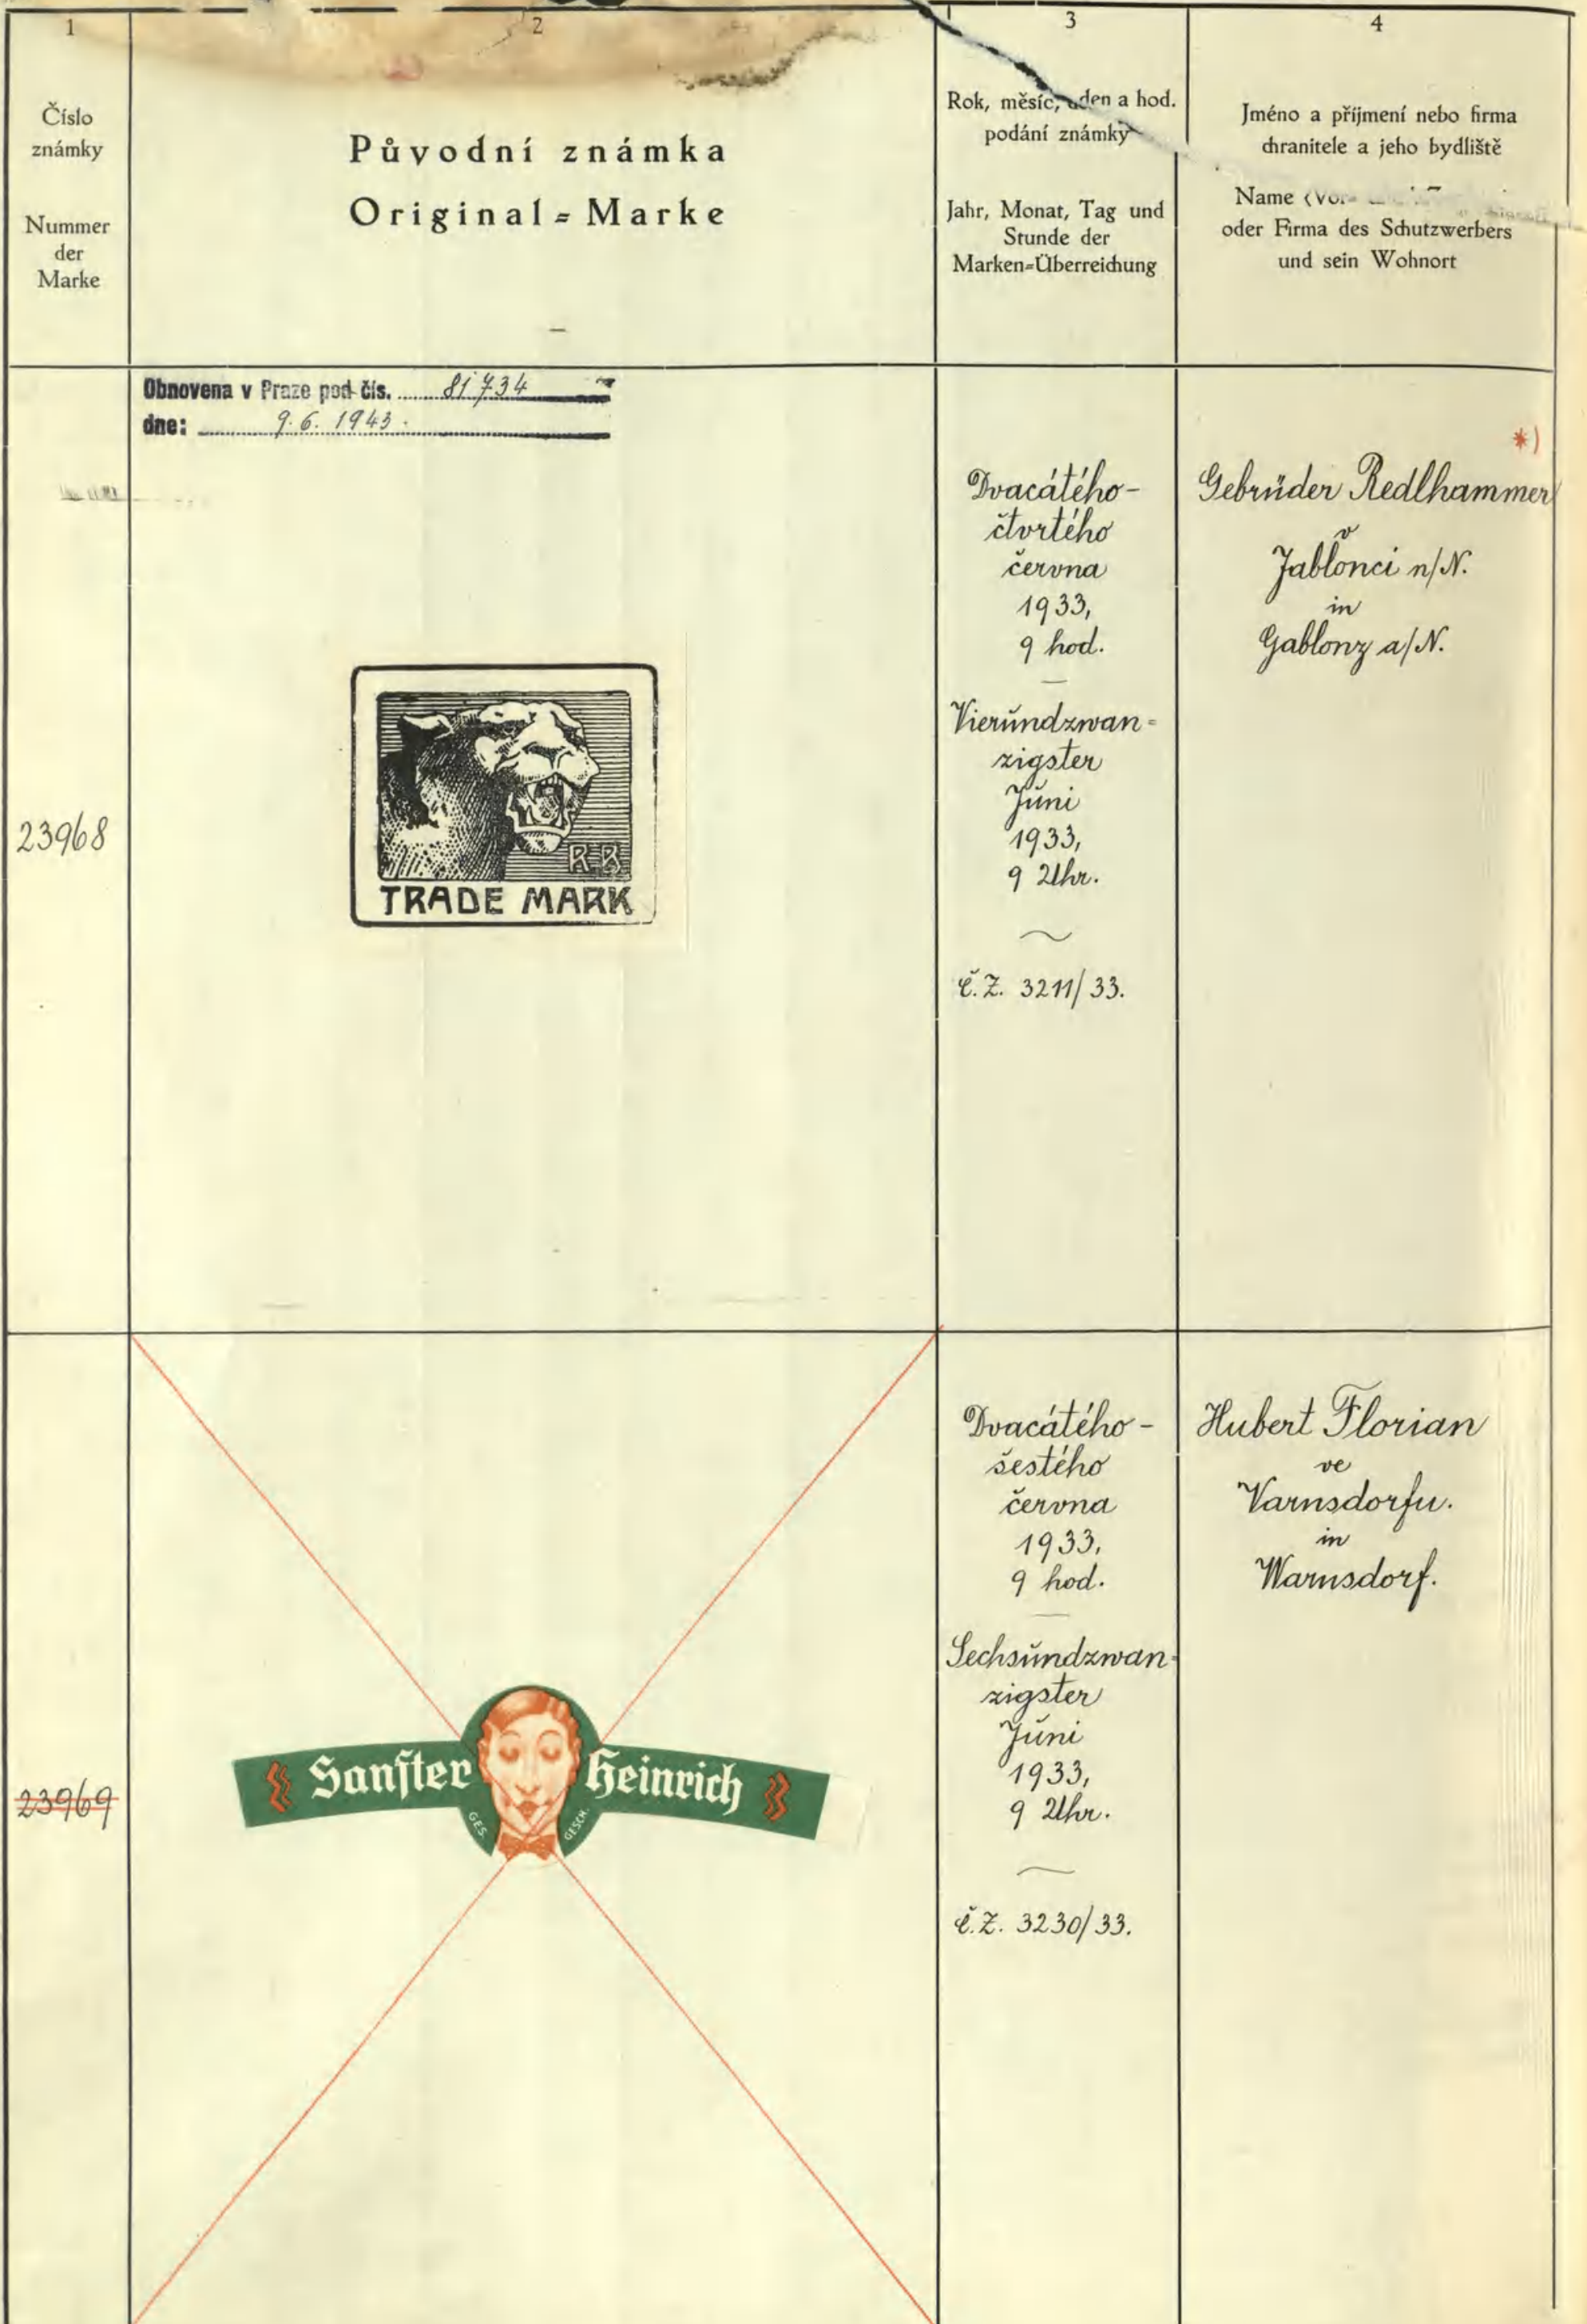 1
2
3
4
Číslo
známky
Nummer
der
Marke
Původní známka
Original=Marke
Rok, měsíc, den a hod.
podání známky
Jahr, Monat, Tag und
Stunde der
Marken=Überreichung
Jméno a příjmení nebo firma
chranitele a jeho bydliště
Name
oder Firma des Schutzwerbers
und sein Wohnort
Obnovena v Praze pod čís. 81734
dne: 9. 6. 1943.
23968
R B
TRADE MARK
Dvacátého-
čtvrtého
června
1933,
9 hod.
Vierundzwan=
zigster
Juni
1933,
9 Uhr.
Č.Z. 3211/33.
*)
Gebrüder Redlhammer
v
Jablonci n/N.
in
Gablonz a/N.
23969
Sanfter Heinrich
GES. GESCH.
Dvacátého-
šestého
června
1933,
9 hod.
Sechsundzwan-
zigster
Juni
1933,
9 Uhr.
Č.Z. 3230/33.
Hubert Florian
ve
Varnsdorfu.
in
Warnsdorf.